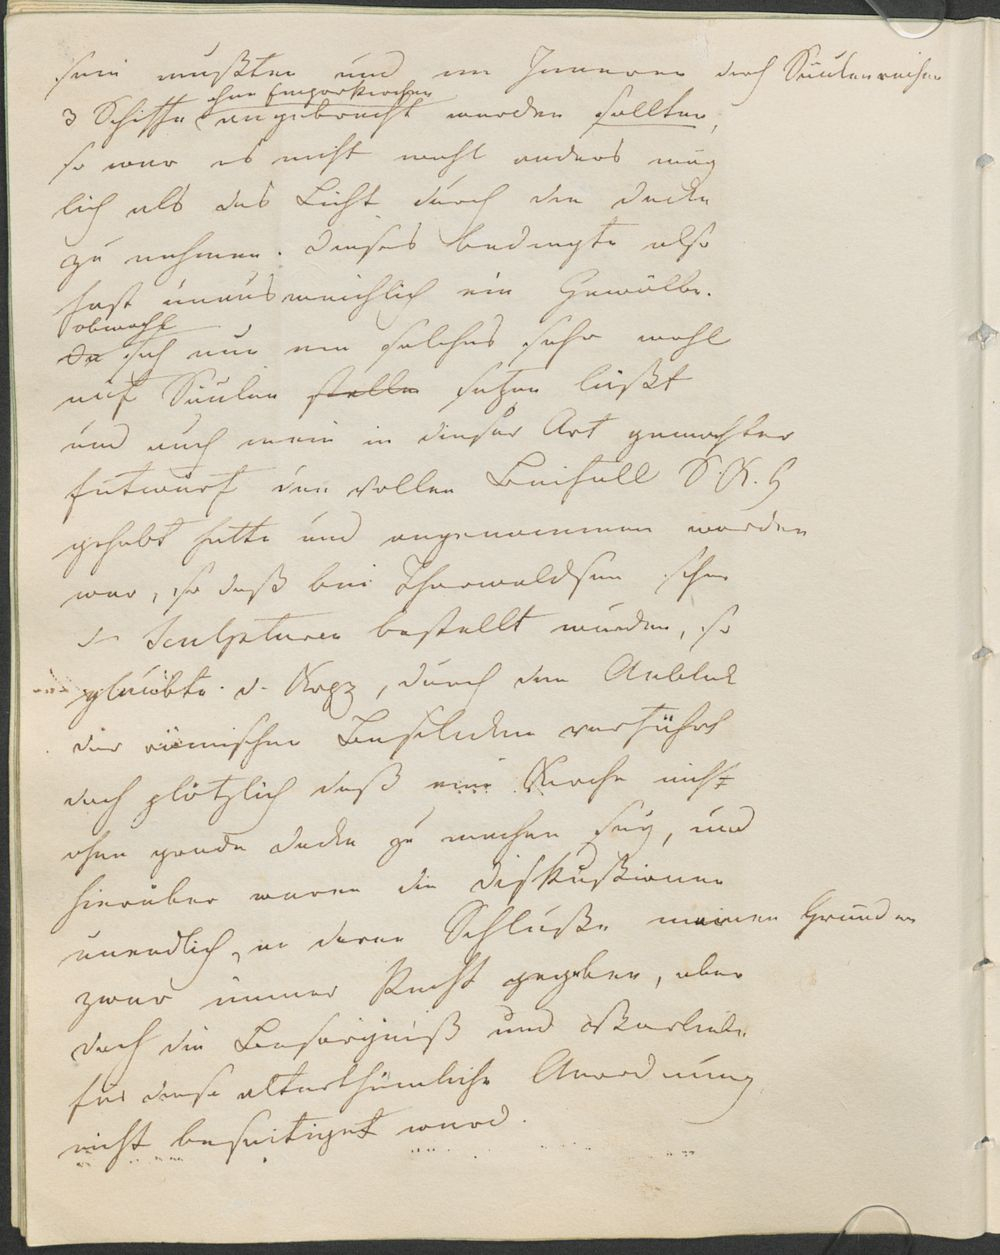 sein mußten und im Inneren durch Säulenreihen
ohne Emporkirchen
3 Schiffe angebracht werden sollten,
so war es nicht wohl anders mög
lich als das Licht durch die Decke
zu nehmen. Dieses bedingte also
fast unausweichlich ein Gewölbe.
obwohl
Da sich nun ein solches sehr wohl
auf Säulen stellen setzen läßt
und auch mein in dieser Art gemachter
Entwurf den vollen Beifall S. K. H
gehabt hatte und angenommen worden
war, so daß bei Thorwaldsen schon
d Sculpturen bestellt wurden, so
glaubte d. Kpz, durch den Anblick
der römischen Basiliken verführt
doch plötzlich daß eine Kirche nicht
ohne grade Decke zu machen sey, und
hierüber waren die Diskußionen
unendlich, in deren Schluße meinen Gründen
zwar immer Recht gegeben, aber
doch die Besorgniß und Vorliebe
für diese alterthümliche Anordnung
nicht beseitiget ward.